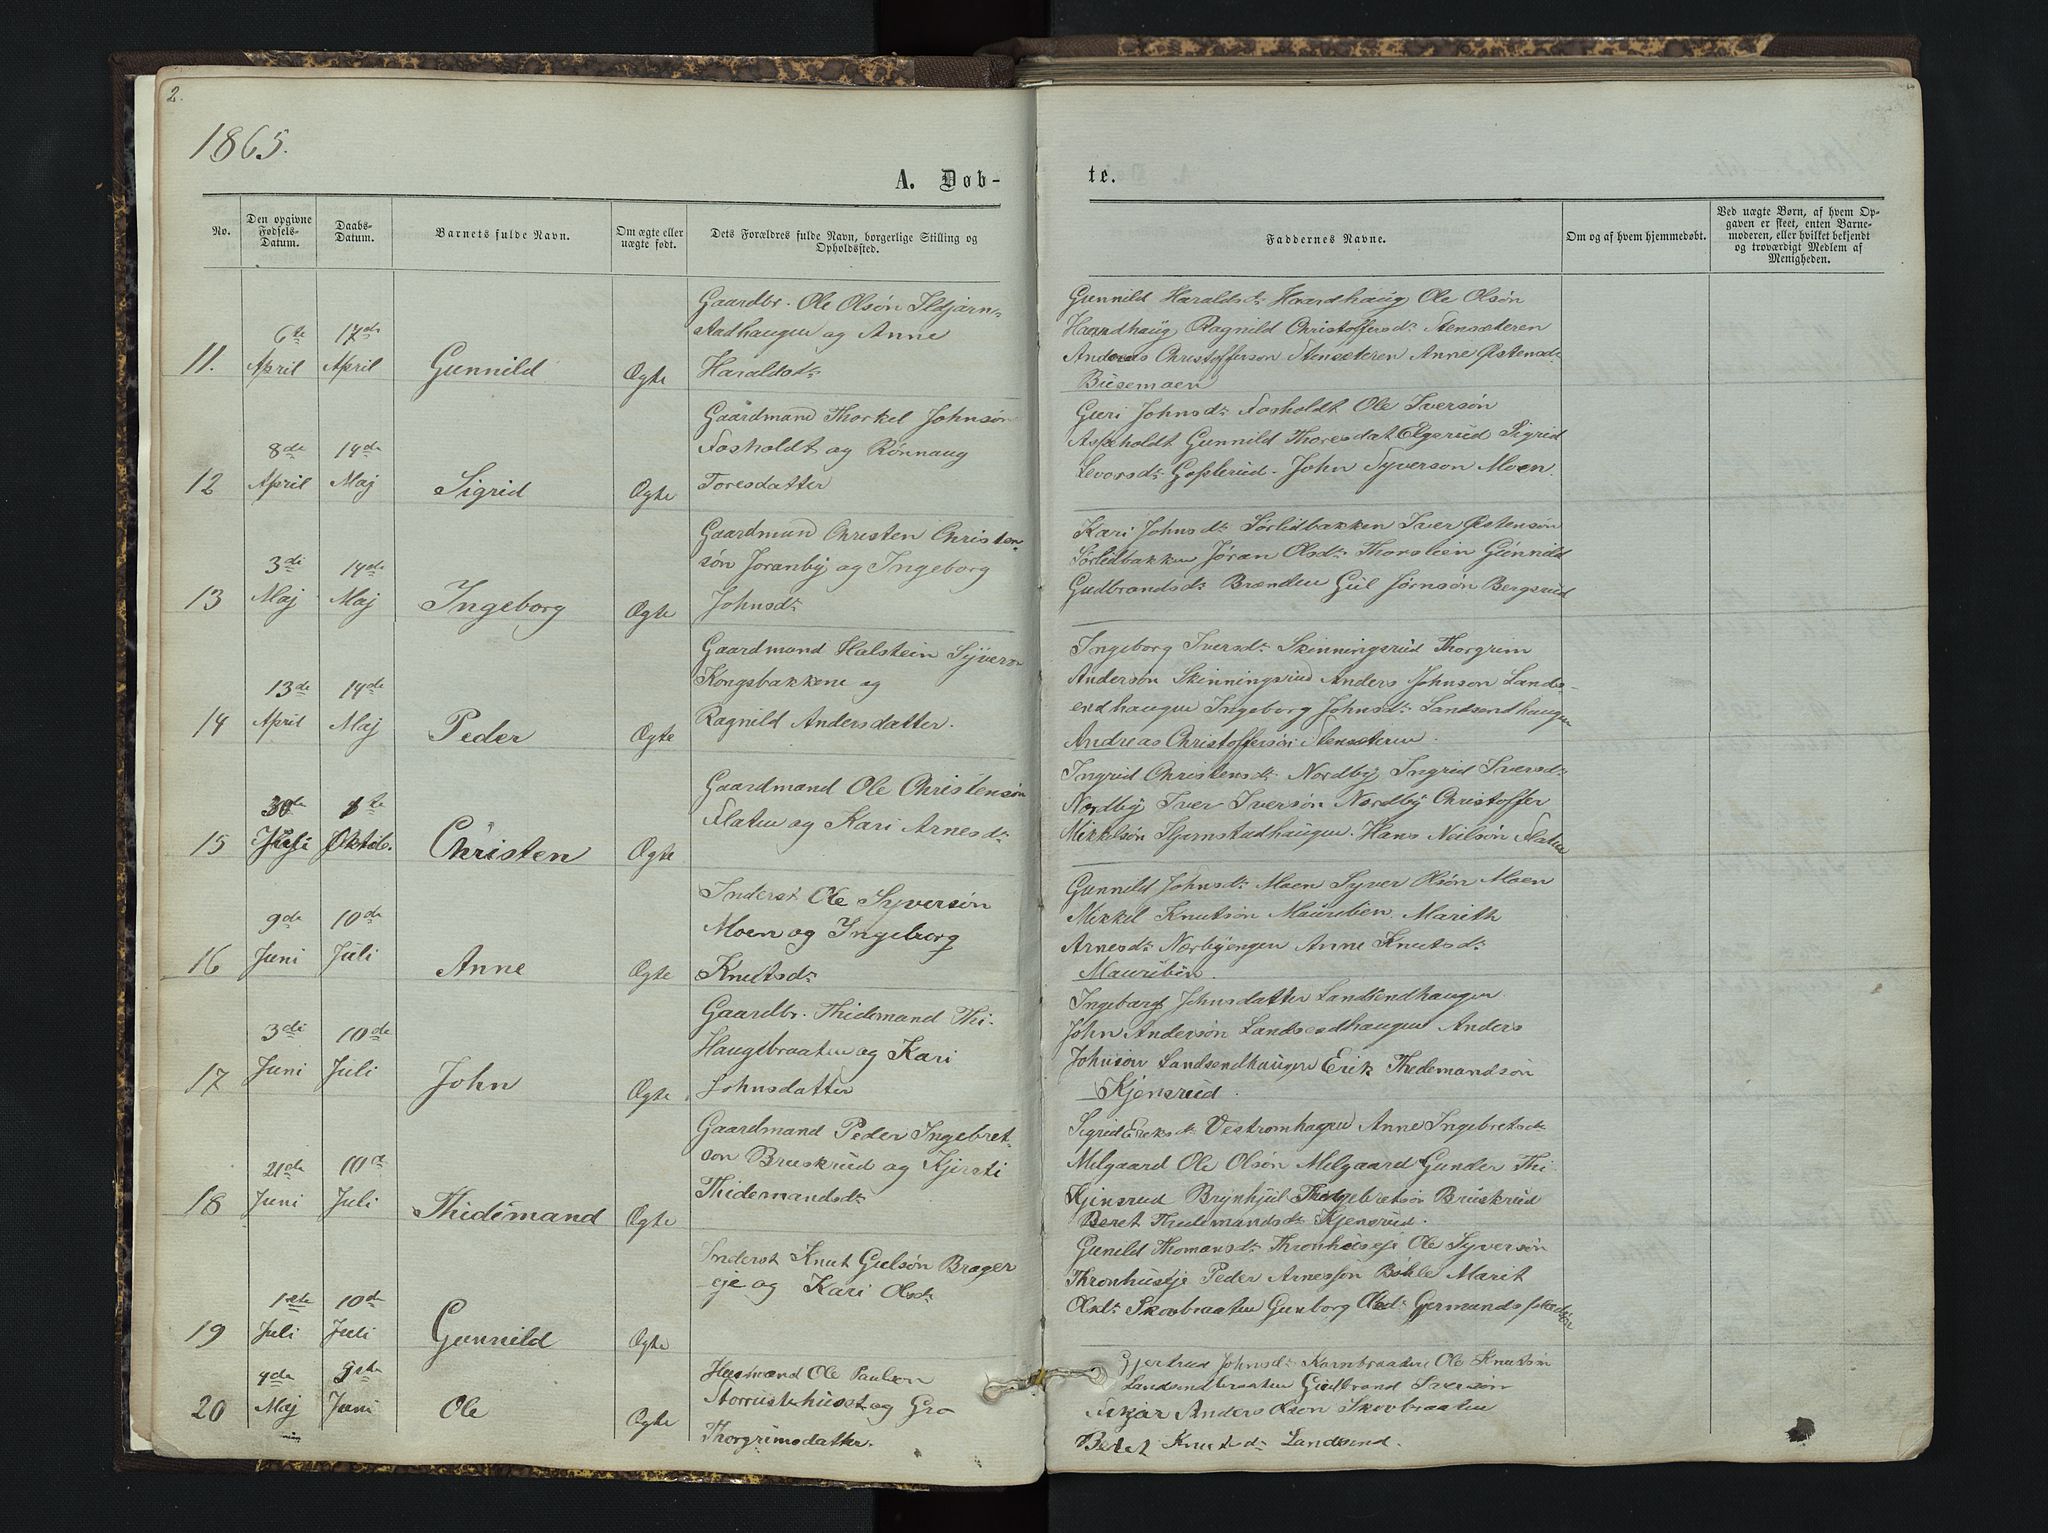 2.
1865.
A. Døb-
te.
No.
Den opgivne Fødsels-Datum.
Daabs-Datum.
Barnets fulde Navn.
Om ægte eller uægte født.
Dets Forældres fulde Navn, borgerlige Stilling og Opholdssted.
Faddernes Navne.
Om og af hvem hjemmedøbt.
Ved uægte Børn, af hvem Opgaven er skeet, enten Barnemoderen, eller hvilket bekjendt og troværdigt Medlem af Menigheden.
11. 6te April 17de April Gunnild Ægte
Gaardbr. Ole Olsøn Ildjarn-
stadhaugen og Anne
Haraldsdr
Gunnild Haraldsdr Haardhaug Ole Olsøn
Haardhaug Ragnild Christoffersdr Stensæteren
Andreas Christofferson Stensæteren Anne Østensdr
Busemoen
12 8de April 14de Maj Sigrid Ægte
Gaardmand Thorkel Johnsøn
Fosholdt og Rønnaug
Toresdatter
Guri Johnsdr Fosholdt Ole Iversøn
Aspholdt Gunnild Thoresdat Elgerud Sigrid
Levorsdr Goplerud. John Syverson Moen.
13 3di Maj 14de Maj Ingeborg Ægte
Gaardmand Christen Christen-
søn Joranby og Ingeborg
Johnsdr
Kari Johnsdr Sørlidbakken Iver Østensøn
Sørlidbakken Jøran Olsdr Thorslien Gunnild
Gudbrandsdr Brænden Gul Jørnsøn Bergsrud
14 13de April 14de Maj Peder Ægte
Gaardmand Halstein Syvers
Kongsbakkene og
Ragnild Andersdatter.
Ingeborg Iversdr Skinningsrud Thorgrim
Anderson Skinningsrud Anders Johnson Lands-
endhaugen Ingeborg Johnsdr Landsendhaugen
Andreas Christoffersøn Stensæteren.
15 Juli Oktob. Christen Ægte
Gaardmand Ole Christensøn
Flaten og Kari Arnesdr
Ingrid Christensdr Nordby Ingrid Iversdr
Nordby Iver Iversøn Nordby Christoffer
Mikkelsøn Hans Neilsøn Flaten
16 9de Juni 10de Juli Anne Ægte
Inderst Ole Syversøn
Moen og Ingeborg
Knutsdr
Gunnild Johnsdr Moen Syver Olsøn Moen
Mikkel Knutsøn Marith
Arnesdr Norbyengen Anne Knutsdr
17 3di Juni 10de Juli John Ægte
Gaardbr. Thidemand Thi.
Haugsbraaten og Kari
Johnsdatter
Ingebarg Johnsdatter Landsendhaugen.
John Andersøn Landsendhaugen Anders
Johnsøn Landsendhaugen Erik Thedemandsøn
Kjensrud.
18 21de Juni 10de Juli Thidemand Ægte
Gaardmand Peder Ingebret-
son Bruskrud og Kjersti
Thidemandsdr
Sigrid Eriksdr Vestromhagen Anne Ingebretsdr
Melgaard Ole Olsøn Melgaard Gunder Thi.
Kjensrud Brynhjul Bruskrud
Beret Thidemandsdr Kjensrud.
19 1ste Juli 10de Juli Gunnild Ægte
Inderst Knut Gulsøn Brager
eje og Kari Olsdr
Gunild Thomansdr Thronhuseje Ole Syversøn
Thronhuseje Peder Arnesson Bohle Marit
Olsdr Skovbraaten Gunborg Olsdr
20 9de Maj Juni Ole Ægte
Husmand Ole Paulsen
Storrustehuset og Gro
Thorgrimsdatter.
Gjertrud Johnsdr Kornbraaten Ole Knutsøn
Landsendbraaten Gudbrand Iversøn
Anders Olson Skovbraaten
Beret Knutsdr Landsend.